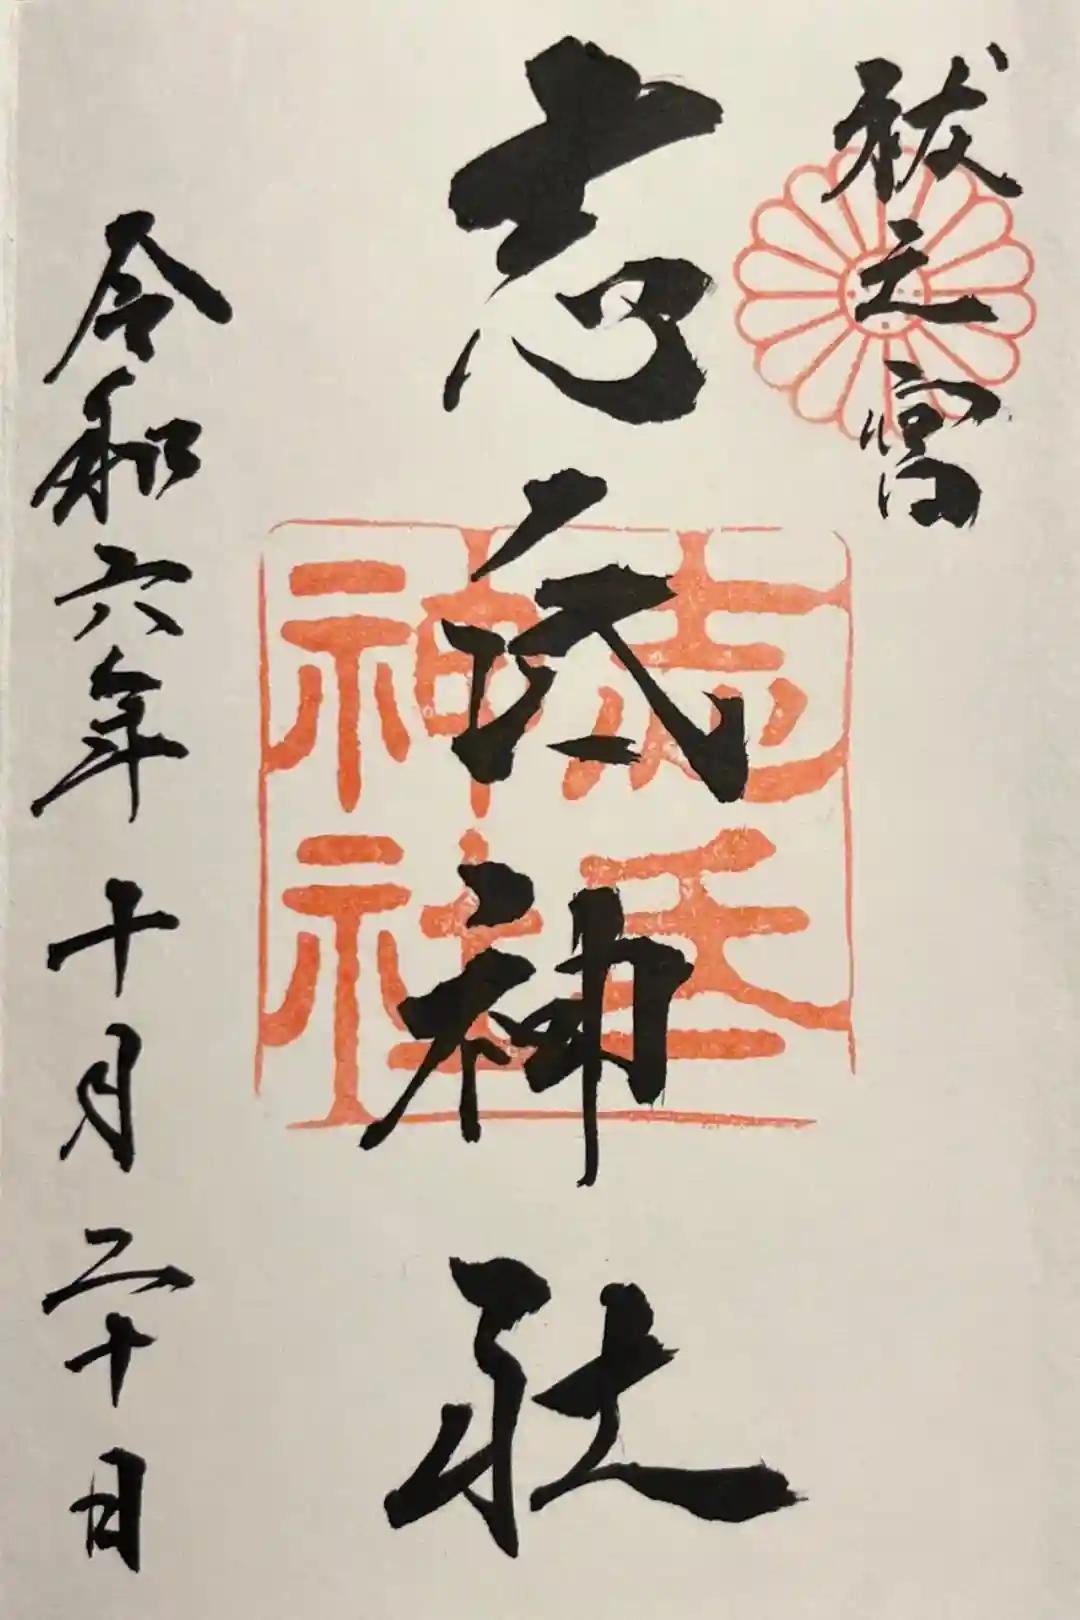 祓之宮
志氐神社
令和六年十月二十日
志氐
神社